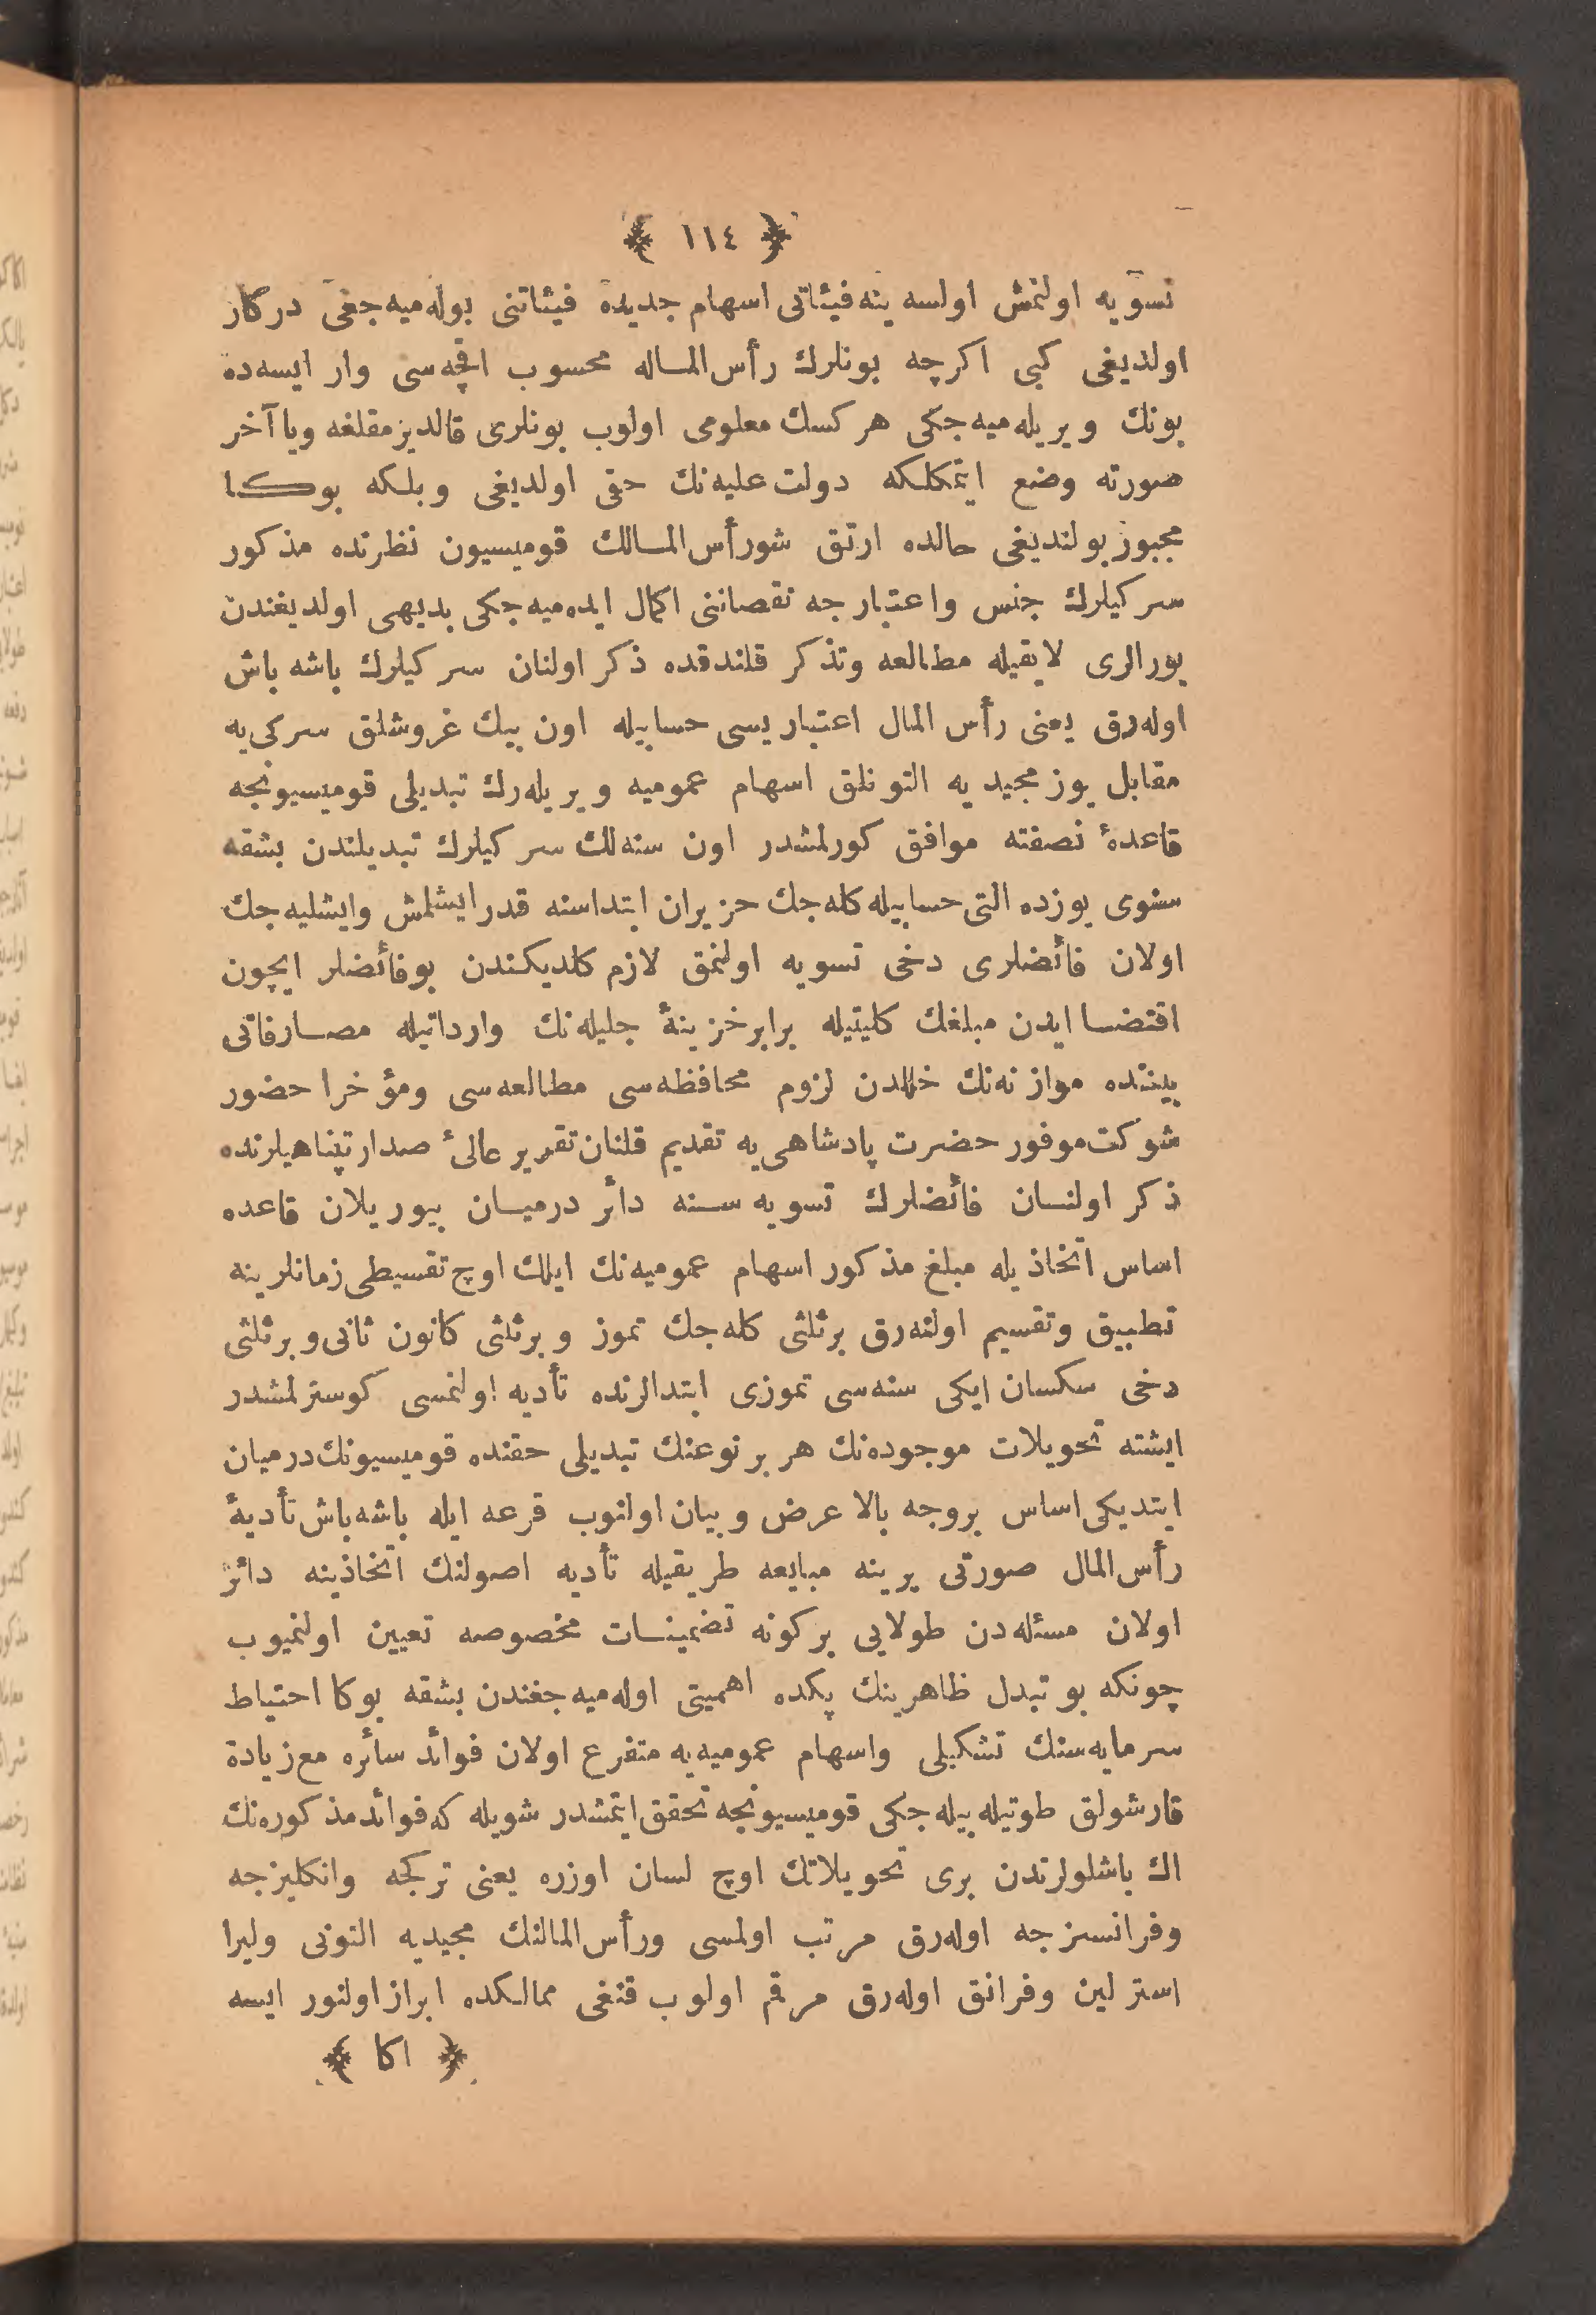 ﴿ ١١٤ ﴾
تسویه اولنمش اولسه ینه فیئاتی اسهام جدیده فیئاتنی بوله‌میه‌جغی درکار
اولدیغی کبی اکرچه بونلرك رأس‌الماله محسوب اقچه‌سی وار ایسه‌ده
بونك ویریله‌میه‌جکی هرکسك معلومی اولوب بونلری قالدیرمقلغه ویا آخر
صورته وضع ایتمکلکه دولت علیه‌نك حقی اولدیغی وبلکه بوکا
مجبور بولندیغی حالده ارتق شورأس‌المالك قومیسیون نظرنده مذکور
سرکیلرك جنس واعتبارجه نقصاننی اکمال ایده‌میه‌جکی بدیهی اولدیغندن
بورالری لایقیله مطالعه وتذکر قلندقده ذکر اولنان سرکیلرك باشه باش
اوله‌رق یعنی رأس المال اعتباریسی حسابیله اون بیك غروشلق سرکی‌یه
مقابل یوز مجیدیه التونلق اسهام عمومیه ویریله‌رك تبدیلی قومیسیونجه
قاعدهٔ نصفته موافق کورلمشدر اون سنه‌لك سرکیلرك تبدیلندن بشقه
سنوی یوزده التی حسابیله کله‌جك حزیران ابتداسنه قدر ایشلمش وایشلیه‌جك
اولان فائضلری دخی تسویه اولنمق لازم کلدیکندن بوفائضلر ایچون
اقتضا ایدن مبلغك کلیتیله برابر خزینهٔ جلیله‌نك وارداتیله مصارفاتی
بیننده موازنه‌نك خللدن لزوم محافظه‌سی مطالعه‌سی ومؤخرا حضور
شوکت‌موفور حضرت پادشاهی‌یه تقدیم قلنان تقریر عالیٔ صدارتپناهیلرنده
ذکر اولنان فائضلرك تسویه‌سنه دائر درمیان بیوریلان قاعده
اساس اتخاذیله مبلغ مذکور اسهام عمومیه‌نك ایلك اوچ تقسیطی زمانلرینه
تطبیق وتقسیم اولنه‌رق برثلثی کله‌جك تموز وبرثلثی کانون ثانی وبرثلثی
دخی سکسان ایکی سنه‌سی تموزی ابتدالرنده تأدیه اولنمسی کوسترلمشدر
ایشته تحویلات موجوده‌نك هر برنوعنك تبدیلی حقنده قومیسیونك درمیان
ایتدیکی اساس بروجه بالا عرض وبیان اولنوب قرعه ایله باشه‌باش تأدیهٔ
رأس‌المال صورتی یرینه مبایعه طریقیله تأدیه اصولنك اتخاذینه دائر
اولان مسئله‌دن طولایی برکونه تضمینات مخصوصه تعیین اولنمیوب
چونکه بو تبدل ظاهرینك پكده اهمیتی اوله‌میه‌جغندن بشقه بوکا احتیاط
سرمایه‌سنك تشکیلی واسهام عمومیه‌یه متفرع اولان فوائد سائره مع زیادة
قارشولق طوتیله‌بیله‌جکی قومیسیونجه تحقق ایتمشدر شویله که فوائد مذکوره‌نك
اك باشلولرندن بری تحویلاتك اوچ لسان اوزره یعنی ترکجه وانکلیزجه
وفرانسزجه اوله‌رق مرتب اولمسی ورأس‌المالنك مجیدیه التونی ولیرا
استرلین وفرانق اوله‌رق مرقم اولوب قنغی ممالکده ابراز اولنور ایسه
﴿ اکا ﴾